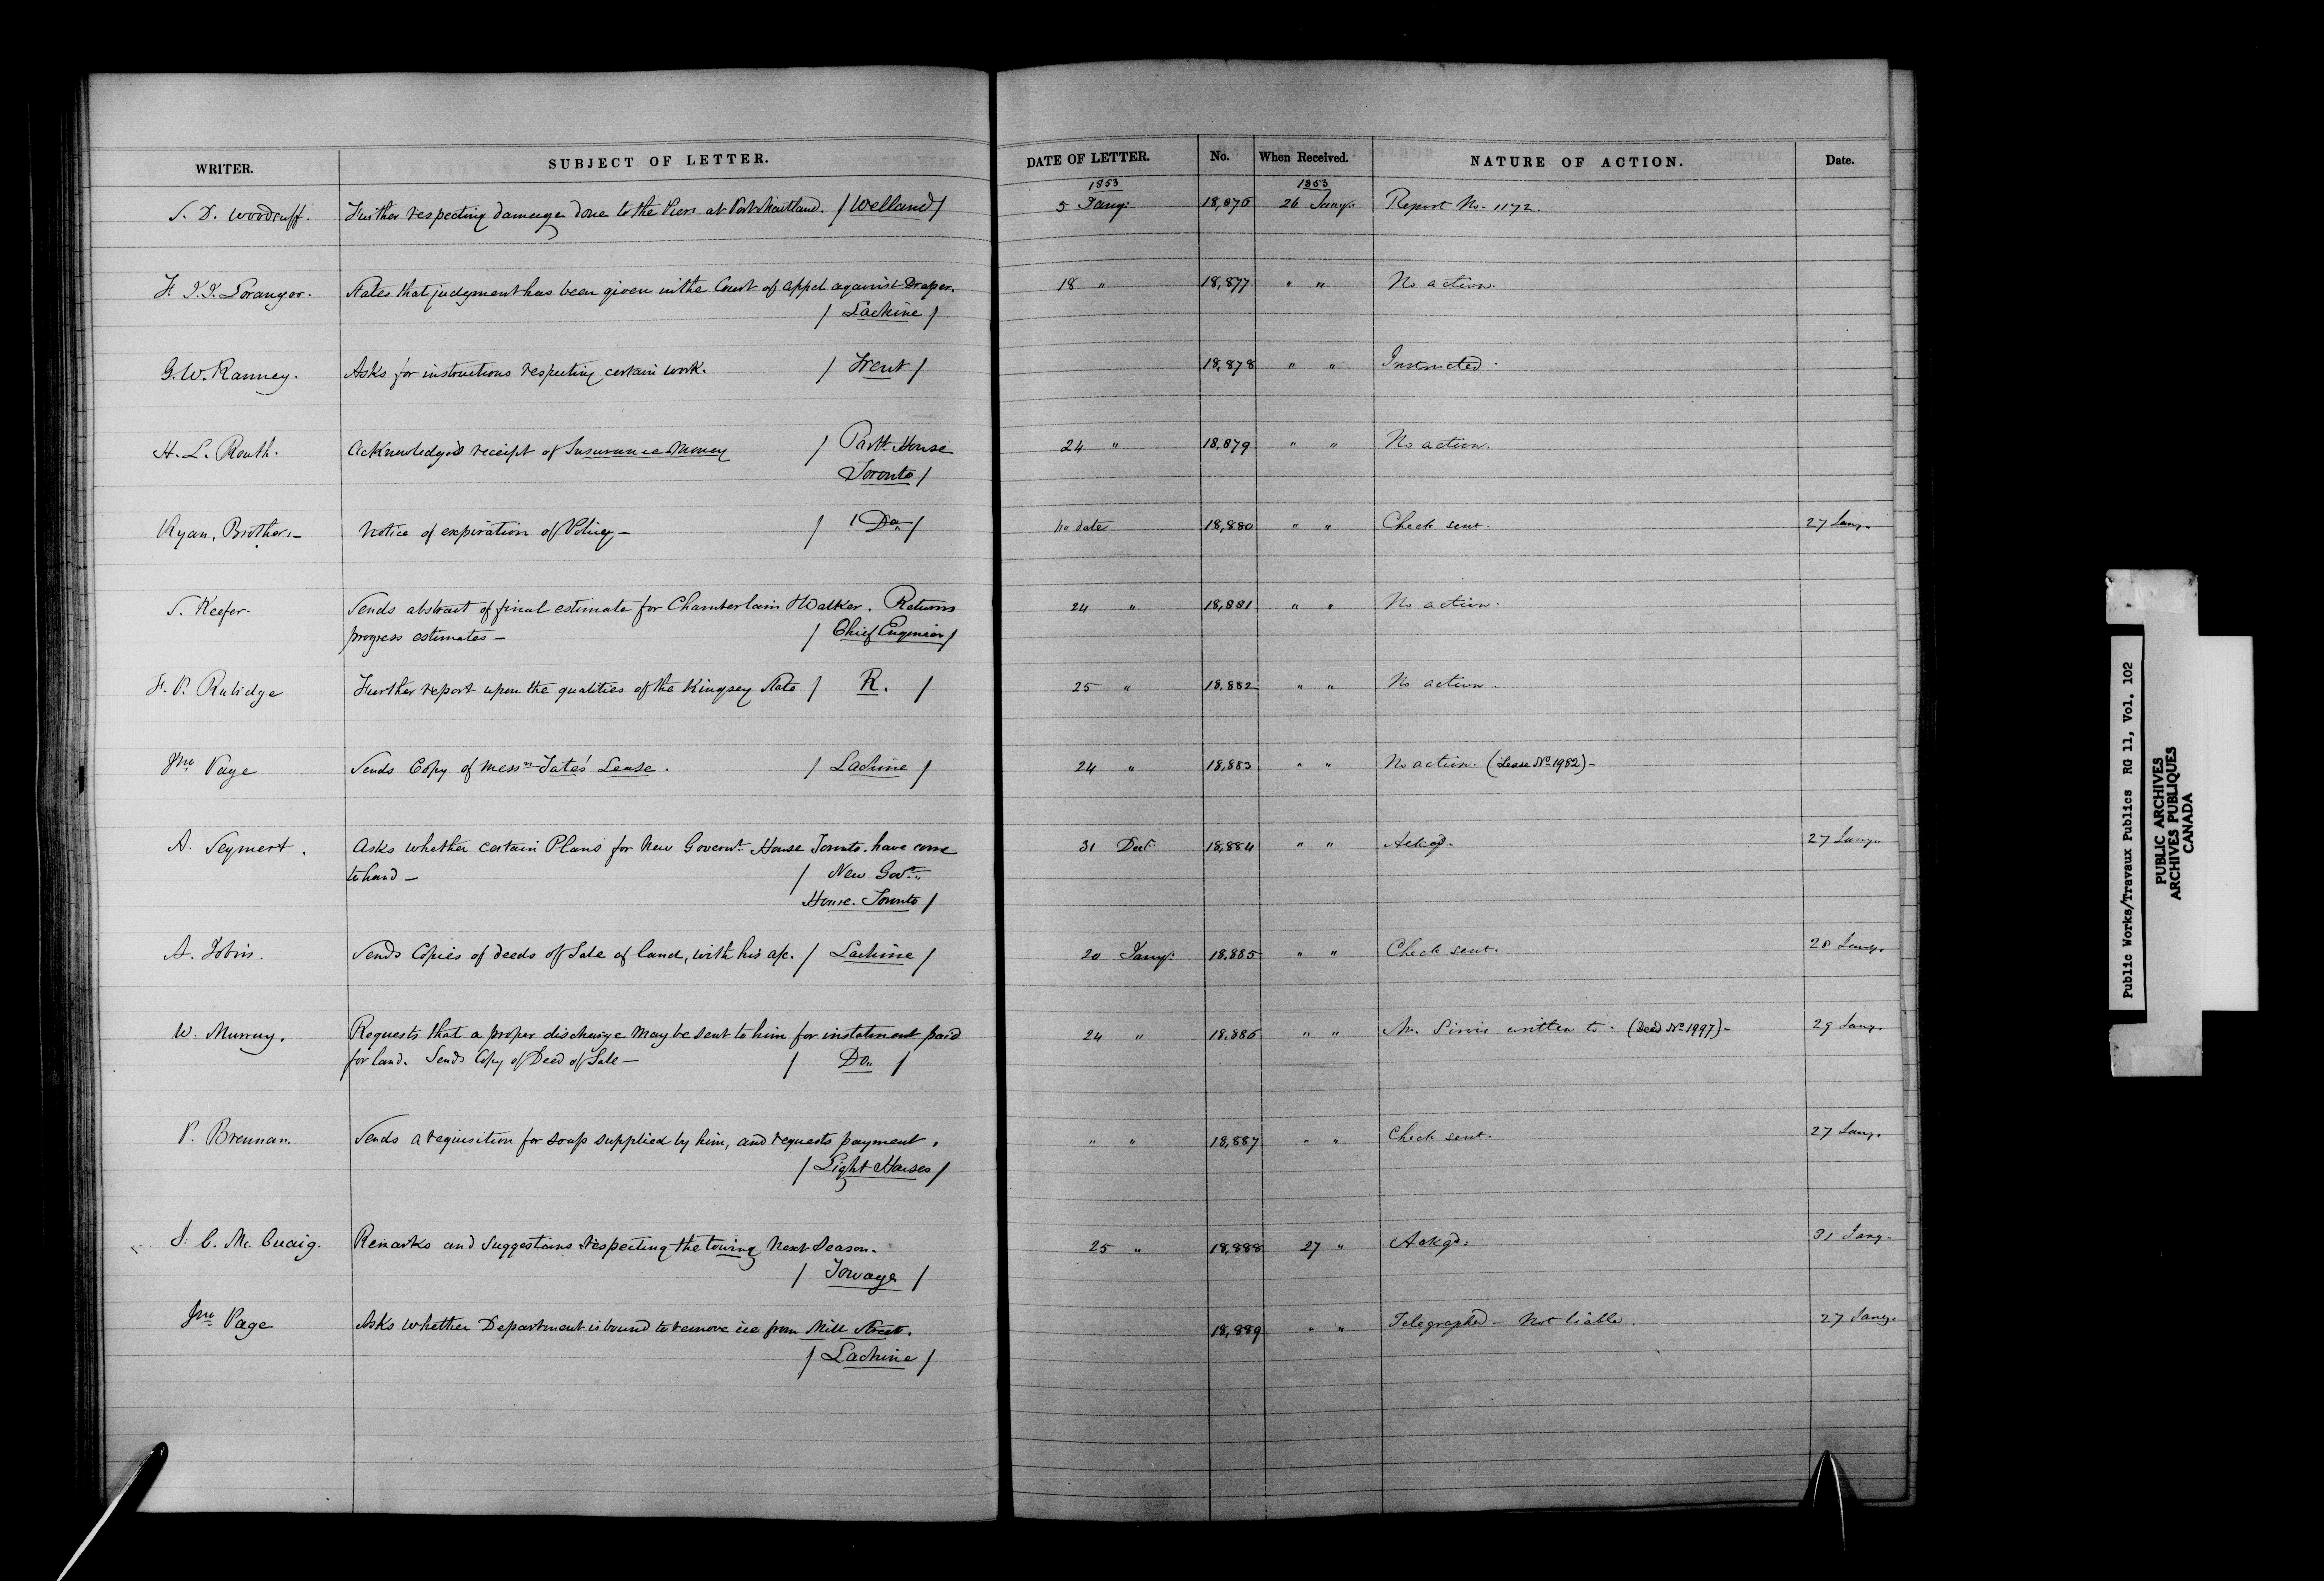 WRITER. SUBJECT OF LETTER. DATE OF LETTER. No. When Received. NATURE OF ACTION. Date.
1853 1853
S. D. Woodruff. Further respecting damage done to the Piers at Port Maitland. / Welland / 5 Jany. 18,876 26 Jany. Report No. 1172.
States that judgment has been given in the Court of Appeal against Draper. 18 " 18,877 " " No action.
/ Lachine /
G. W. Ranney. Asks for instructions respecting certain work. / Trent / 18,878 " " Instructed.
H. L. Routh. Acknowledges receipt of Insurance Money / Parlt. House 24 " 18,879 " " No action.
Toronto /
Ryan, Brothers - Notice of expiration of Policy - / Do / no date 18,880 " " Check sent. 27 Jany.
S. Keefer. Sends abstract of final estimate for Chamberlain & Walker. Returns 24 " 18,881 " " No action.
progress estimates - / Chief Engineer /
F. P. Rubidge Further report upon the qualities of the Kingsey Slate / R. / 25 " 18,882 " " No action.
Jno. Page Sends Copy of Messrs Tate's Lease. / Lachine / 24 " 18,883 " " No action. (Lease No 1982) -
A. Seymert. Asks whether certain Plans for New Governt. House Toronto. have come 31 Decr. 18,884 " " Ackgd. 27 Jany.
to hand - / New Govt.
House. Toronto /
A. Jobin. Sends Copies of deeds of Sale of land, with his a/c. / Lachine / 20 Jany. 18,885 " " Check sent. 28 Jany.
W. Murray. Requests that a proper discharge may be sent to him for instalment paid 24 " 18,886 " " written to. (Deed No 1997) - 29 Jany.
for land. Sends Copy of Deed of Sale - / Do /
P. Brennan. Sends a requisition for soap supplied by him, and requests payment. " " 18,887 " " Check sent. 27 Jany.
/ Light Houses /
J. C. Mc Cuaig. Remarks and Suggestions respecting the towing next Season. 25 " 18,888 27 " Ackgd. 31 Jany.
/ Towage /
Jno. Page Asks whether Department is bound to remove ice from Mill Street. 18,889 " " Telegraphed - Not liable. 27 Jany.
/ Lachine /
Public Works/Travaux Publics RG 11, Vol. 102
PUBLIC ARCHIVES
ARCHIVES PUBLIQUES
CANADA